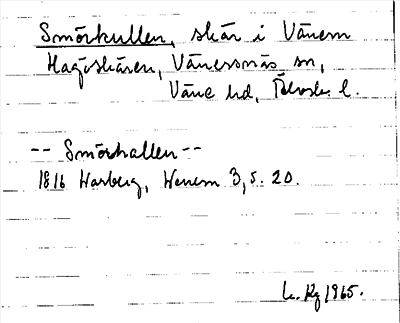 Smörkullen, skär i Vänern
Hagöskären, Vänersnäs sn,
Väne hd, Älvsb. l.
-- Smörkallen --
1816 Warberg, Wenern 3, s. 20.
1965.